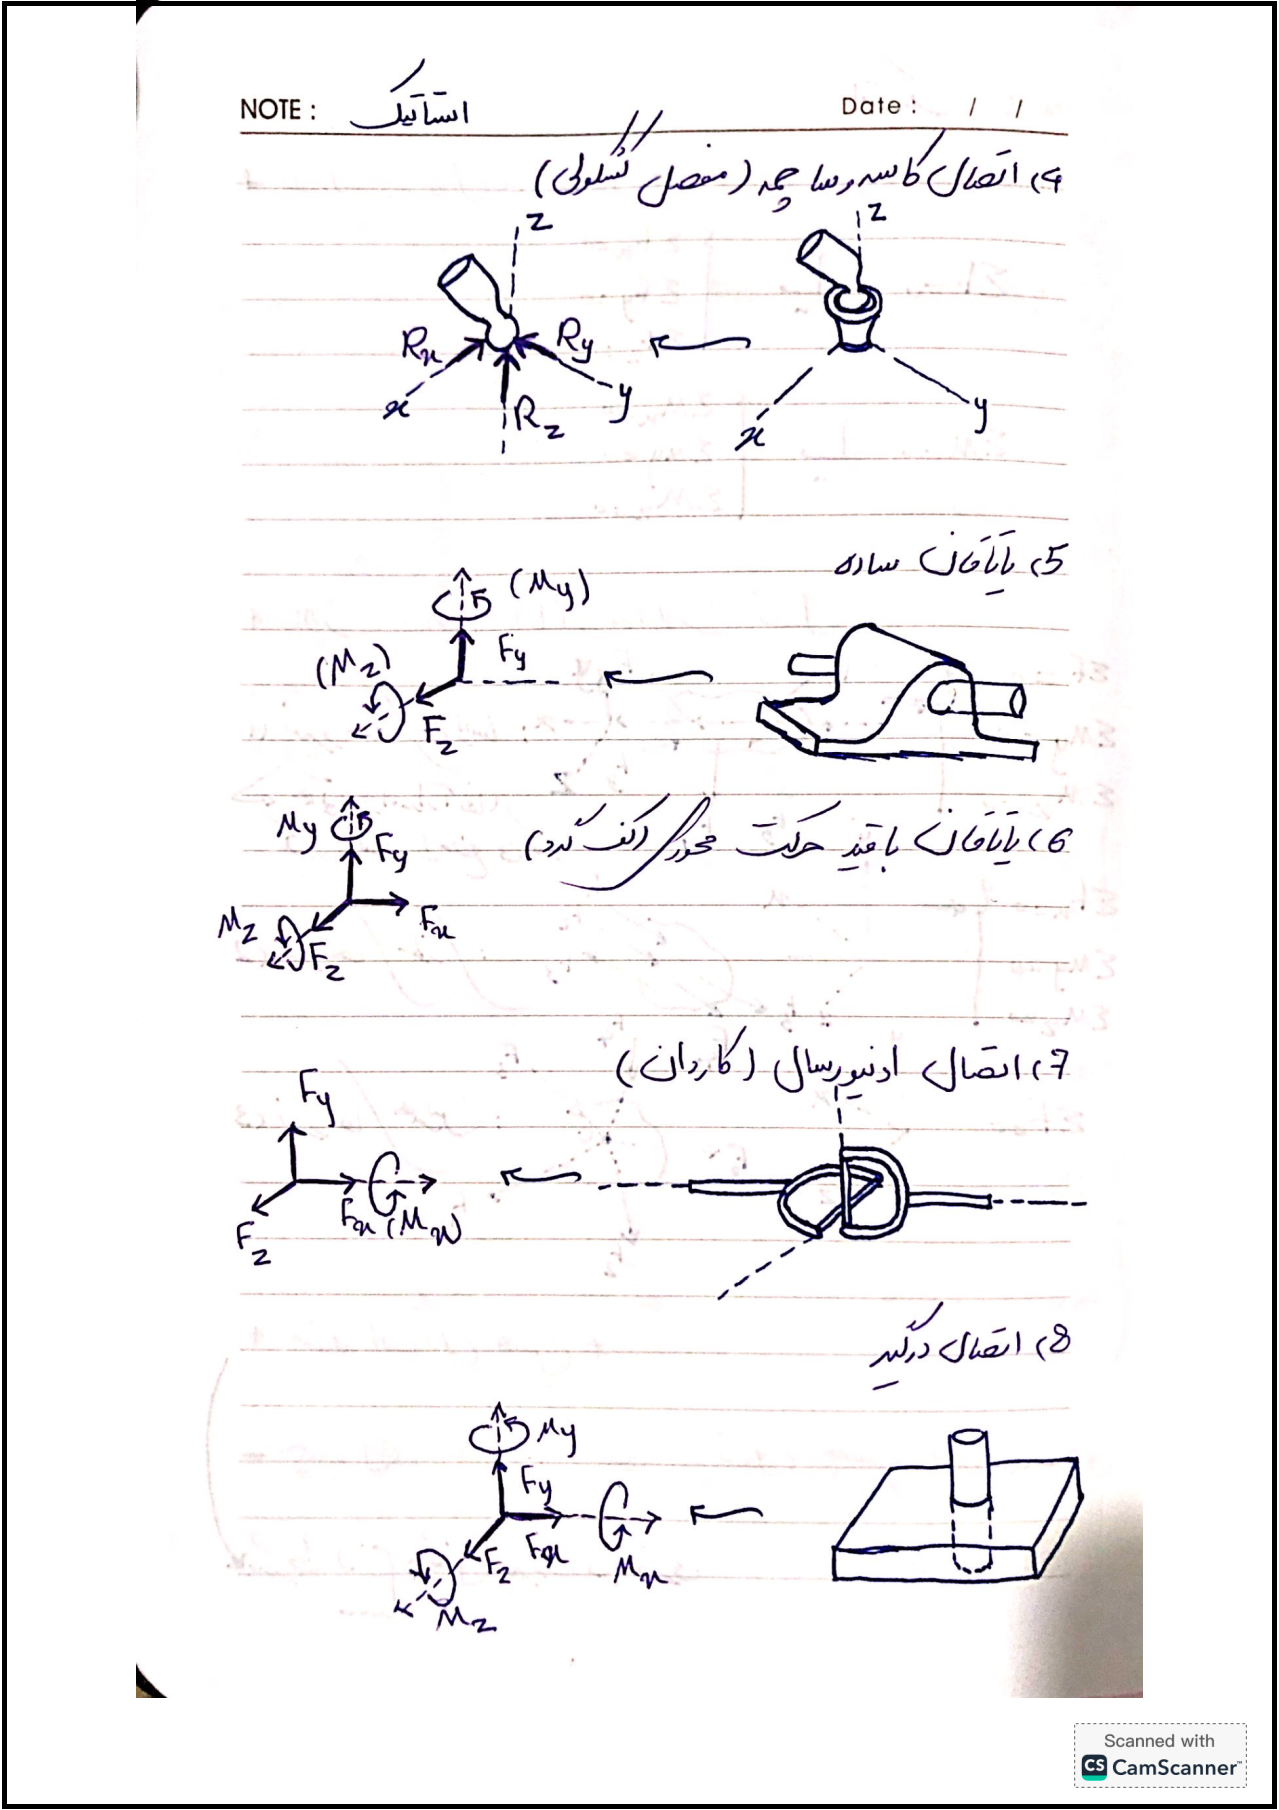 NOTE : استاتیک Date : / /
4) اتصال کاسه و ساچمه (مفصل گلوئی)
z z
Rx Ry
x y Rz x y
5) یاتاقان ساده
(My)
Fy
(Mz)
Fz
6) یاتاقان با قید حرکت محوری (کف گرد)
My Fy
Mz Fz Fx
7) اتصال اونیورسال (کاردان)
Fy
Fx (Mx)
Fz
8) اتصال درگیر
My
Fy
Fz Fx Mx
Mz
Scanned with
CS CamScanner